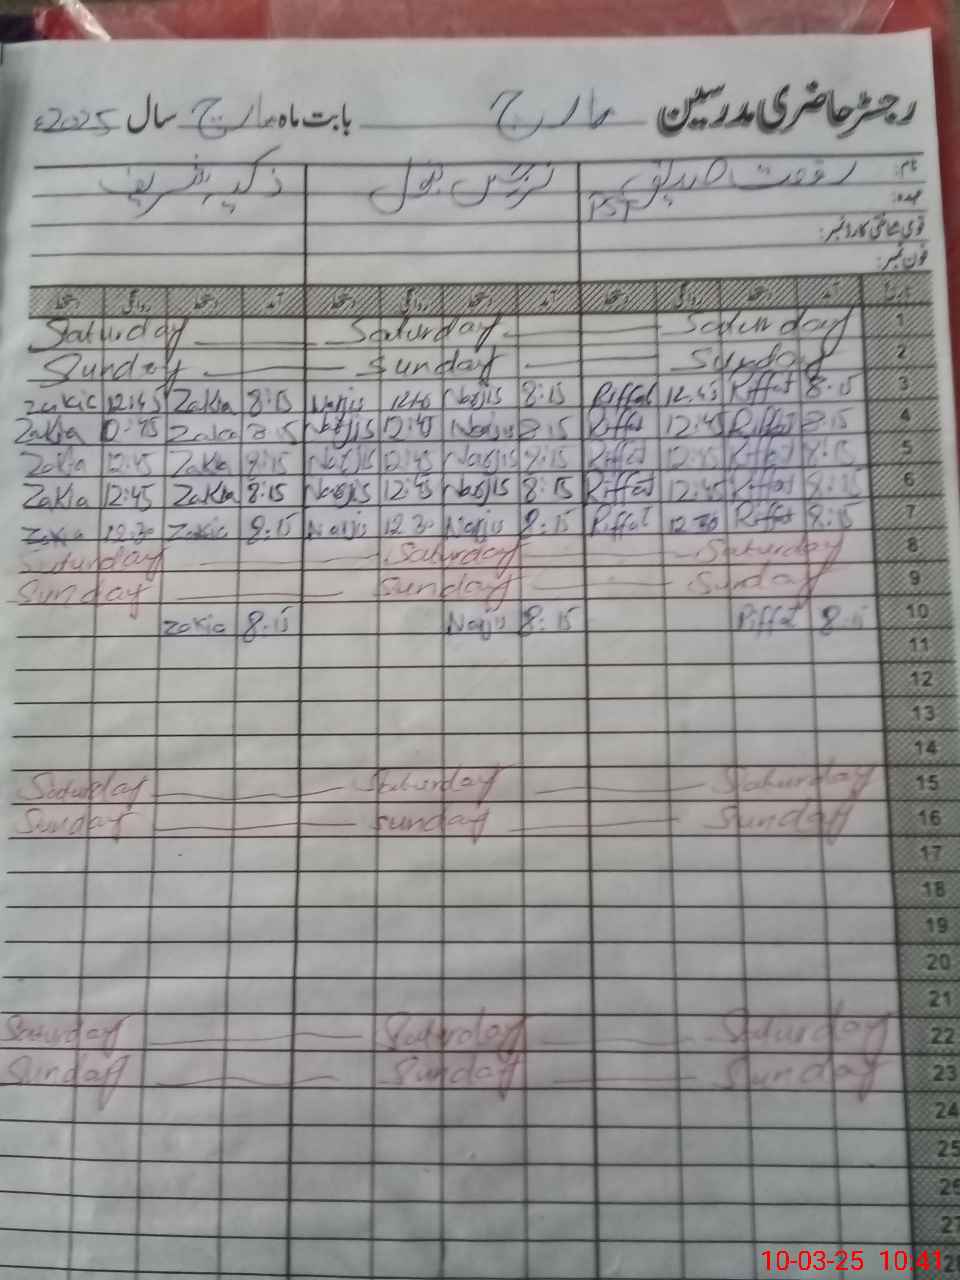 رجسٹر حاضری مدرسین مارچ بابت ماہ مارچ سال 2025ء
نام: رفعت نرجس بتول ذکیہ شریف
عہدہ: PST
قومی شناختی کارڈ نمبر:
فون نمبر:
آمد دستخط روانگی دستخط آمد دستخط روانگی دستخط آمد دستخط روانگی دستخط
Saturday Saturday Saturday 1
Sunday Sunday Sunday 2
Zakia 12:45 Zakia 8:15 Narjis Narjis 8:15 Riffat 12:45 Riffat 8:15 3
Zakia Zakia 8:15 Narjis 12:45 Narjis 8:15 Riffat 12:45 Riffat 8:15 4
Zakia 12:45 Zakia 8:15 Narjis 12:45 Narjis 8:15 Riffat 12:45 Riffat 8:15 5
Zakia 12:45 Zakia 8:15 Narjis 12:45 Narjis 8:15 Riffat 12:45 Riffat 8:15 6
Zakia 12:30 Zakia 8:15 Narjis 12:30 Narjis 8:15 Riffat 12:30 Riffat 8:15 7
Saturday Saturday Saturday 8
Sunday Sunday Sunday 9
Zakia 8:15 Narjis 8:15 Riffat 8:15 10
11
12
13
14
Saturday Saturday Saturday 15
Sunday Sunday Sunday 16
17
18
19
20
21
Saturday Saturday Saturday 22
Sunday Sunday Sunday 23
24
25
26
27
10-03-25 10:41